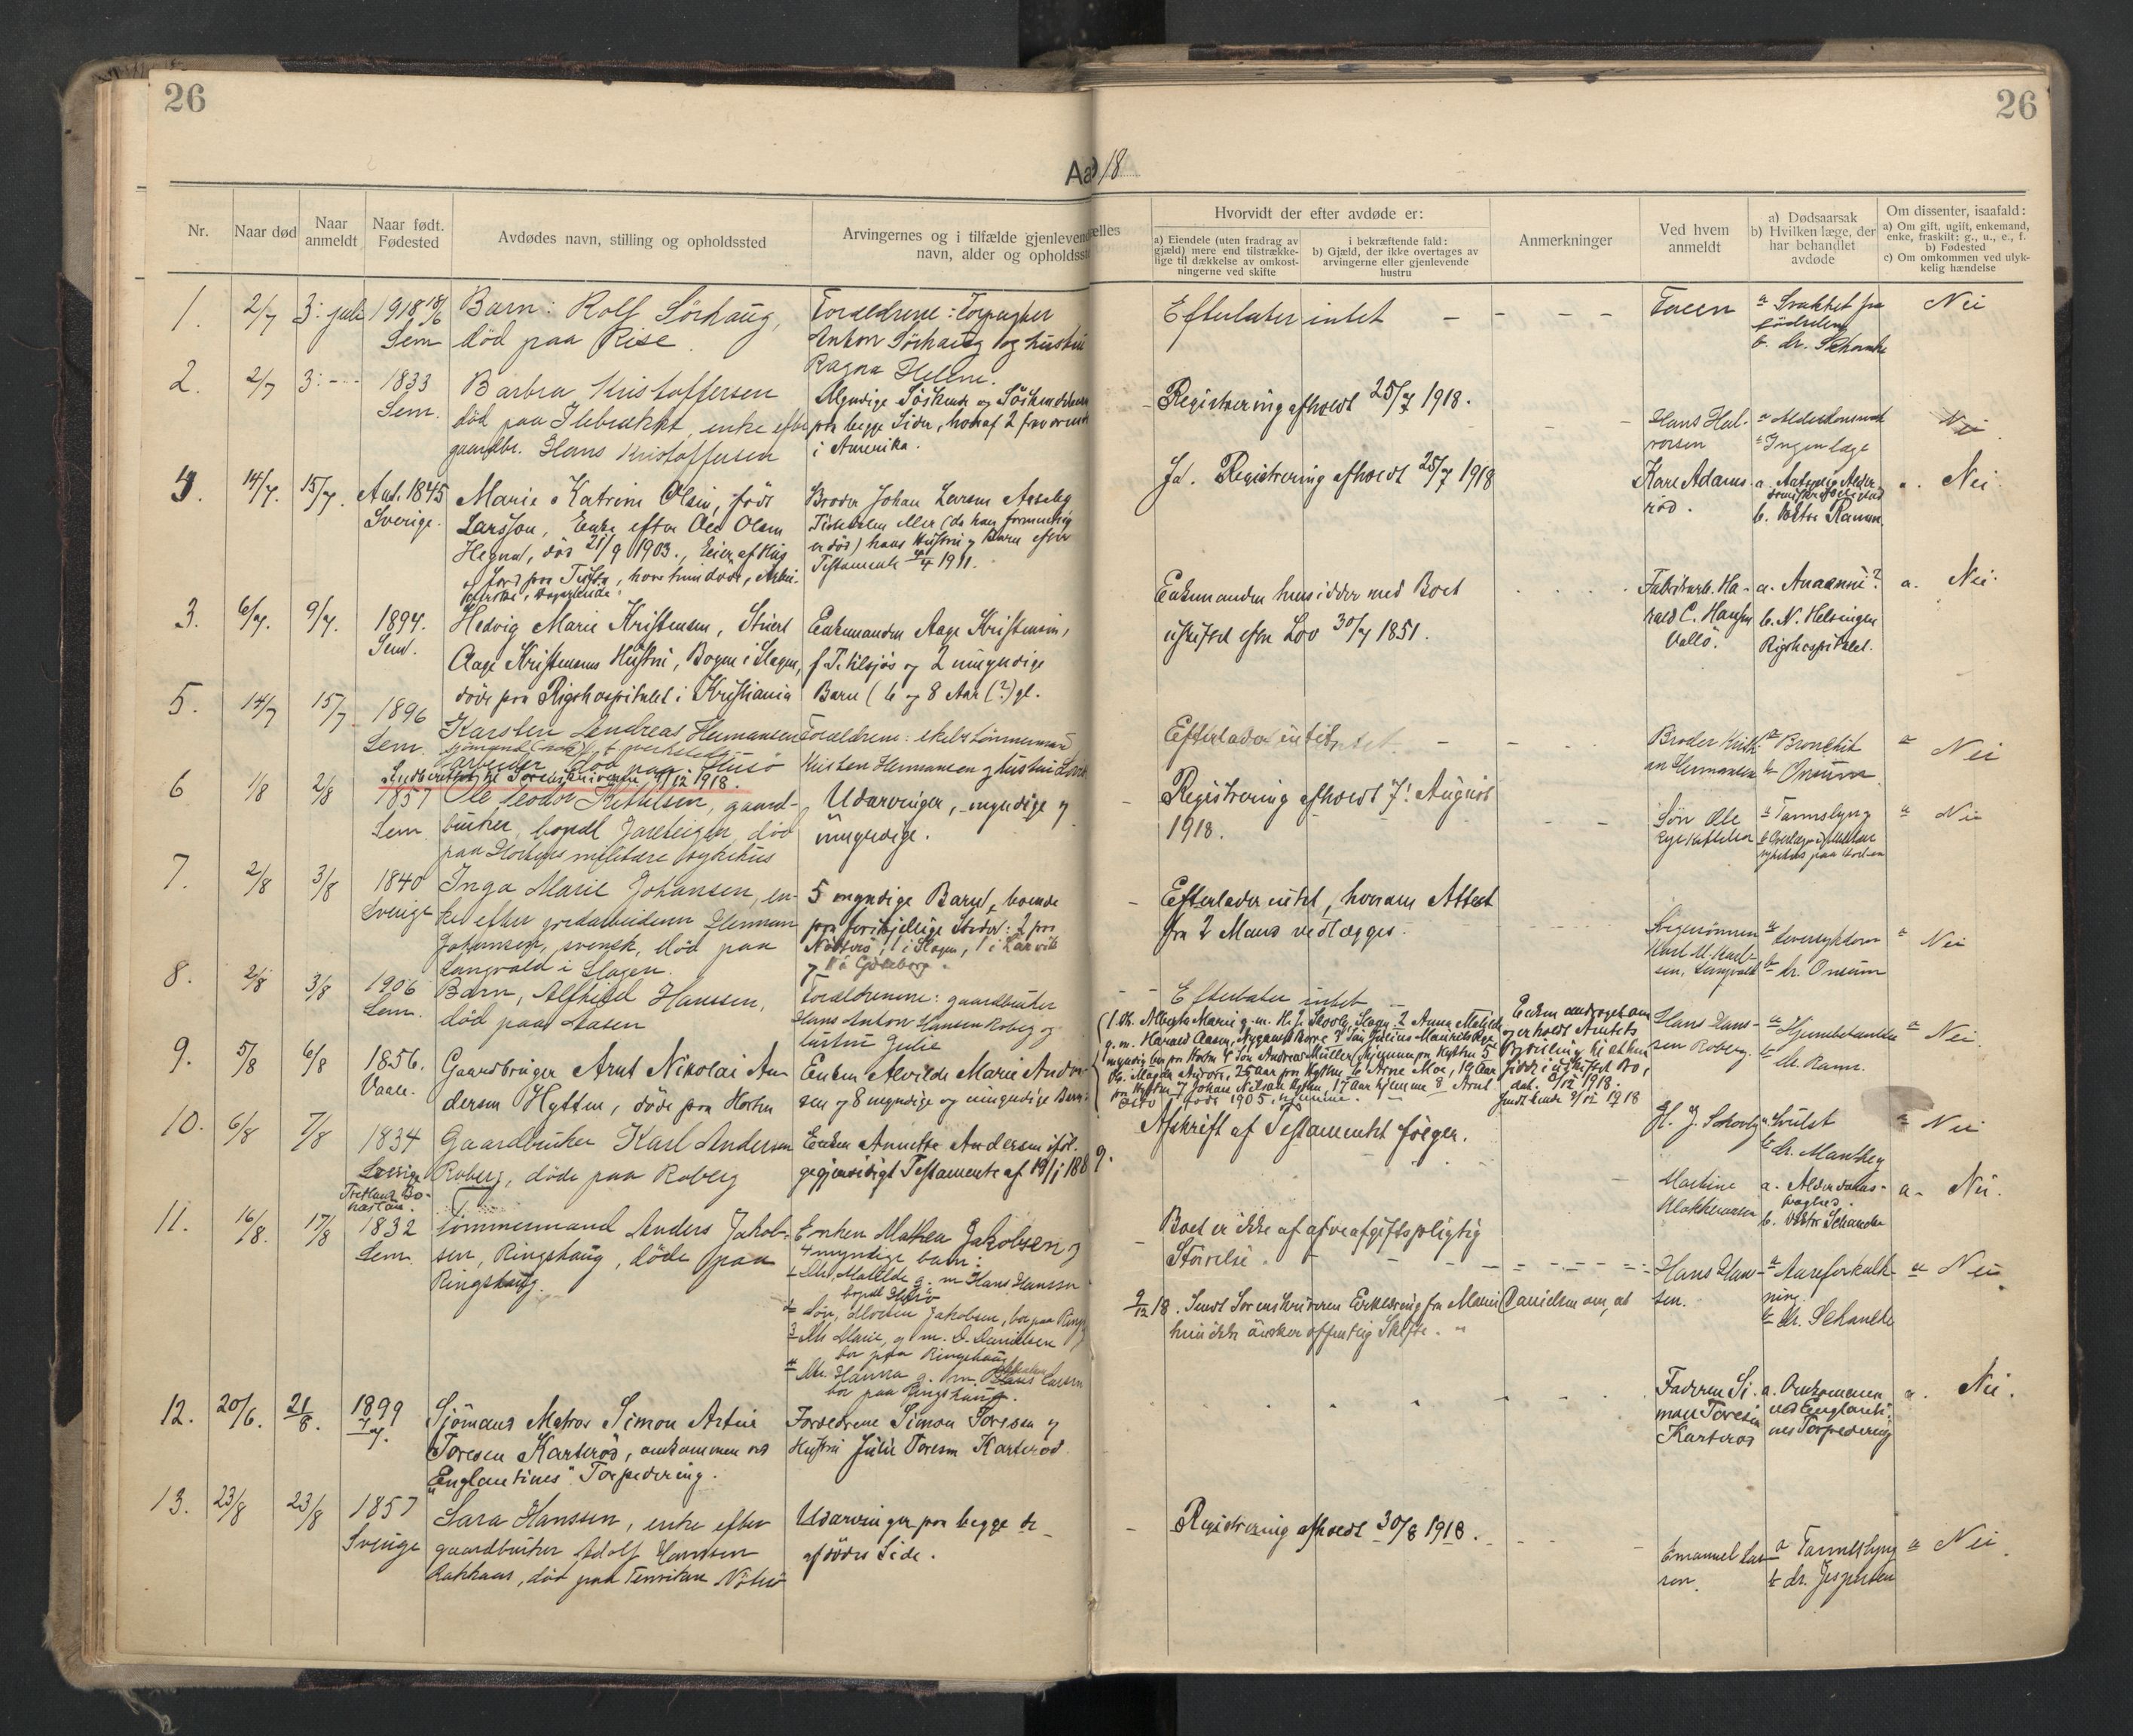 26
26
Aa 18
Nr.
Naar død
Naar anmeldt
Naar født. Fødested
Avdødes navn, stilling og opholdssted
Arvingernes og i tilfælde gjenlevend
navn, alder og opholdsst
ælles
Hvorvidt der efter avdøde er:
a) Eiendele (uten fradrag av
gjæld) mere end tilstrække-
lige til dækkelse av omkost-
ningerne ved skifte
i bekræftende fald:
b) Gjæld, der ikke overtages av
arvingerne eller gjenlevende
hustru
Anmerkninger
Ved hvem
anmeldt
a) Dødsaarsak
b) Hvilken læge, der
har behandlet
avdøde
Om dissenter, isaafald:
a) Om gift, ugift, enkemand,
enke, fraskilt: g., u., e., f.
b) Fødested
c) Om omkommen ved ulyk-
kelig hændelse
1. 2/7 3: juli 1918 18/6 Barn: Rolf Sörhaug,
Sem død paa Rise.
Forældrene: Forpagter
Anton Sörhaug og hustru
Ragna Helene.
Efterlater intet
Faren
a Svakhet fra
fødselen
b. dr. Schanche
Nei
2. 2/7 3: 1833 Barbra Kristoffersen
Sem. død paa Ilebrække, enke efter
gaardbr. Hans Kristoffersen
Myndige Söskende og Söskendebörn
paa begge Sider, hvoraf 2 fraværende
i Amerika.
Registrering afholdt 25/7 1918.
Hans Hal-
vorsen
a Alderdomssvak
b Ingen læge
Nei
4. 14/7. 15/7. Aug. 1845 Marie Katrine Olsen, født
Sverige. Larsson, Enke efter Ole Olsen
död 21/9 1903., Eier af Hus
Broder Johan Larsen
er död) hans Hustru og Barn efter
Testamente 4/4 1911.
Ja. Registrering afholdt 25/7 1918
Kare Adams-
röd.
b. Doktor Ramm.
a. Nei
3. 6/7. 9/7. 1894. Hedvig Marie Kristensen, Stuert
Sem. Aage Kristensens Hustru, Bogen i Slagen,
döde paa Rigshospitalet i Kristiania
Enkemanden Aage Kristensen,
f. T. tilsjøs og 2 umyndige
Barn (6 og 8 Aar (?) gl.
Enkemanden hensidder med Boet
uskiftet efter Lov 30/7 1851.
Fabrikarb. Ha-
rald C. Hansen
Vallö.
a. Anaemi?
b. N. Helsingen
Rigshospitalet.
a. Nei.
5. 14/7 15/7 1896 Karsten Andreas Hermansen
Sem. arbeider död paa Husö
Indberettet til Sorenskriveren 9/12 1918.
Forældrene: skibstömmermand
Kristen Hermansen og hustru
Efterlader intet
Broder Kristi-
an Hermansen
a Bronchit
b Onsum
a Nei
6 1/8 2/8 1857 Ole Teodor Kittilsen, gaard-
Sem. bruker, bopæl Jareteigen, död
paa Hortens militære sykehus
Utarvinger, myndige og
umyndige.
Registrering afholdt 7: August
1918.
Sön Ole
a Tarmslyng
a Nei
7. 2/8 3/8 1840 Inga Marie Johansen, en-
Sverige ke efter jordarbeideren Herman
Johansen, svensk, död paa
Langvald i Slagen.
5 myndige Barn, boende
paa forskjellige Steder: 2 paa
Nötterö, 1 i Slagen, 1 i Larvik
og 1 i Göteborg.
Efterlader intet, hvorom Attest
fra 2 Mand vedlægges.
Svigersönnen
Karl M. Karl-
sen, Langvald
a Leversykdom
b dr. Onsum
a Nei
8. 2/8 3/8 1906 Barn, Alfhild Hanssen,
Sem. död paa Aasen
Forældrene: gaardbruker
Hans Anton Hansen Roberg og
hustru Julie
Efterlater intet
Hans Hans-
sen Roberg.
a Hjernebetændelse
b dr. Ramm.
a Nei.
9. 5/8 6/8 1856. Gaardbruger Arnt Nikolai An-
Vaale. dersen Hytten, döde paa Horten
Enken Alvilde Marie Ander-
sen og 8 myndige og umyndige Barn:
(1. Dt. Alberta Marie g. m. H. J. Skovly, Slagen 2 Anna Matilde
g. m. Harald Aasen, Nygaard Borre 3 Sön Julius
4 Sön Andreas Müller hjemme paa Hytten 5
Dt. Magda Andrea, 25 aar paa Hytten 6 Arne Moe, 19 Aar
paa Hytten 7 Johan Nilsen Hytten, 17 aar hjemme 8 Arnt
födt 1905, hjemme.
Enken andraget om
og erholdt Amtets
Bevilling til at hen-
sidde i uskiftet Bo,
dat. 3/12 1918.
H. J. Skovly
a. Svulst
b dr. Manthey
a Nei
10. 6/8 7/8 1834 Gaardbruker Karl Andersen
Sverige Roberg, döde paa Roberg
Enken Annette Andersen iföl-
ge gjensidigt Testamente af 19/1 1889.
Afskrift af Testamentet fölger.
Martine
a. Alderdoms-
svaghed.
b. Doktor Schanche
a. Nei.
11. 16/8. 17/8 1832 Tömmermand Anders Jakob-
Sem. sen, Ringshaug, döde paa
Ringshaug.
Enken Mathea Jakobsen og
4 myndige barn:
1 Dtr. Matilde g. m Hans Hanssen
bopæl Husö
2 Sön, Morten Jakobsen, bor paa Ringsh
3 Dtr Marie, g. m. D. Danielsen
bor paa Ringshaug
4 Dtr. Hanna g. m. Larsen
bor paa Ringshaug.
Boet er ikke af arveafgiftspligtig
Störrelse.
9/12 18. Sendt Sorenskriveren Erklæring fra Marie Danielsen om, at
hun ikke önsker offentlig Skifte.
Hans Han-
sen.
a Aareforkalk-
ning
b dr. Schanche
a Nei
12. 20/6. 21/8. 1899 7/7. Sjömand Matros Simon Artur
Toresen Karteröd, omkommen ved
"Englantines" Torpedering.
Forældrene Simon Toresen og
Hustru Julie Toresen Karteröd.
Faderen Si-
mon Toresen
Karteröd
a. Omkommen
ved Englanti-
nes Torpedering
a. Nei.
13. 23/8 23/8 1857 Sara Hanssen, enke efter
Sverige gaardbruker Adolf Hanssen
Bakkaas, död paa Tenvikene Nöterö
Utarvinger paa begge de
afdödes Side.
Registrering afholdt 30/8 1918.
Emanuel Lar-
sen.
a Tarmslyng
b dr. Jespersen
a Nei